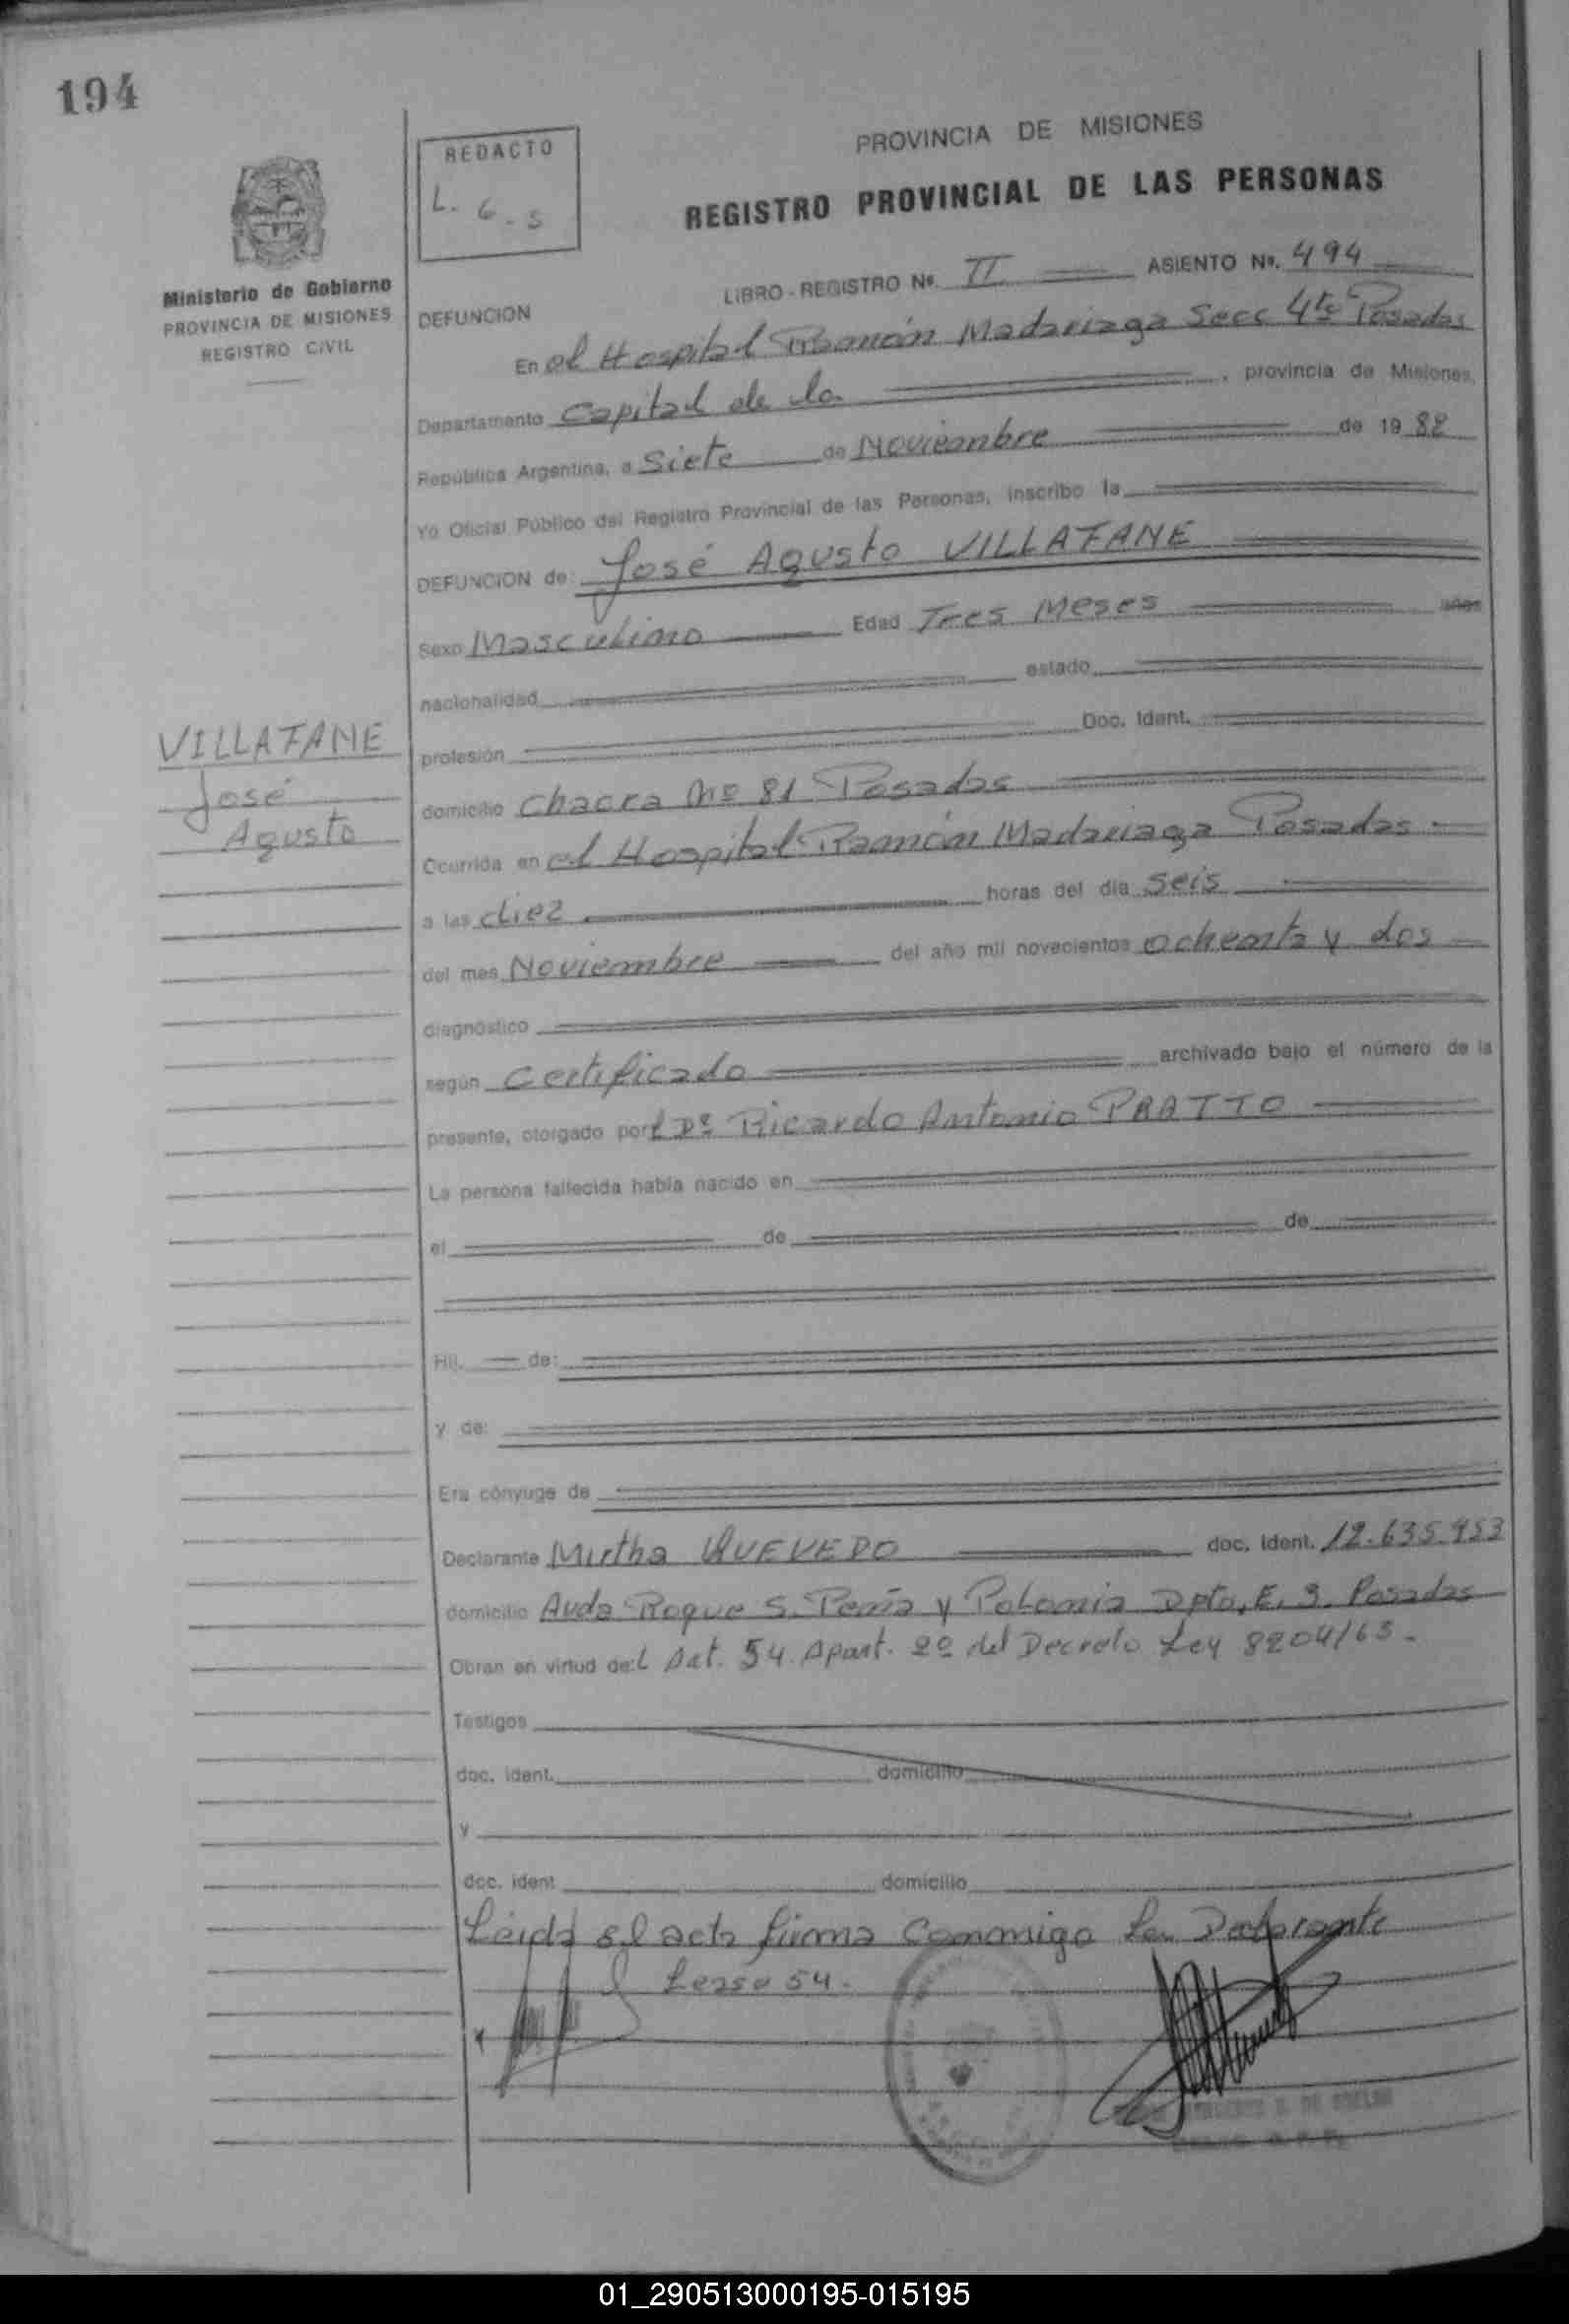 194
REDACTO
L. 6. s
PROVINCIA DE MISIONES
REGISTRO PROVINCIAL DE LAS PERSONAS
Ministerio de Gobierno
PROVINCIA DE MISIONES
REGISTRO CIVIL
LIBRO - REGISTRO Nº. II ASIENTO Nº. 494
DEFUNCION
En el Hospital Ramón Madariaga Secc 4ta Posadas
Departamento Capital de la , provincia de Misiones,
República Argentina, a Siete de Noviembre de 19 82
Yo Oficial Público del Registro Provincial de las Personas, inscribo la
DEFUNCION de: José Agusto VILLAFANE
Sexo Masculino Edad Tres Meses años
nacionalidad estado
profesión Doc. Ident.
VILLAFANE
José
Agusto
domicilio Chacra Nº 81 Posadas
Ocurrida en el Hospital Ramón Madariaga Posadas
a las diez horas del día Seis
del mes Noviembre del año mil novecientos ochenta y dos
diagnóstico
según Certificado archivado bajo el número de la
presente, otorgado por el Dr Ricardo Antonio PRATTO
La persona fallecida había nacido en
el de de
Hij. de:
y de:
Era cónyuge de
Declarante Mirtha QUEVEDO doc. ident. 12.635.953
domicilio Avda Roque S. Peña y Polonia Dpto. E. 3. Posadas
Obran en virtud de:l Art. 54. Apart. 2º del Decreto Ley 8204/63.
Testigos
doc. ident. domicilio
y
doc. ident domicilio
Leida el acta firma Conmigo la Declarante
54.
01_290513000195-015195